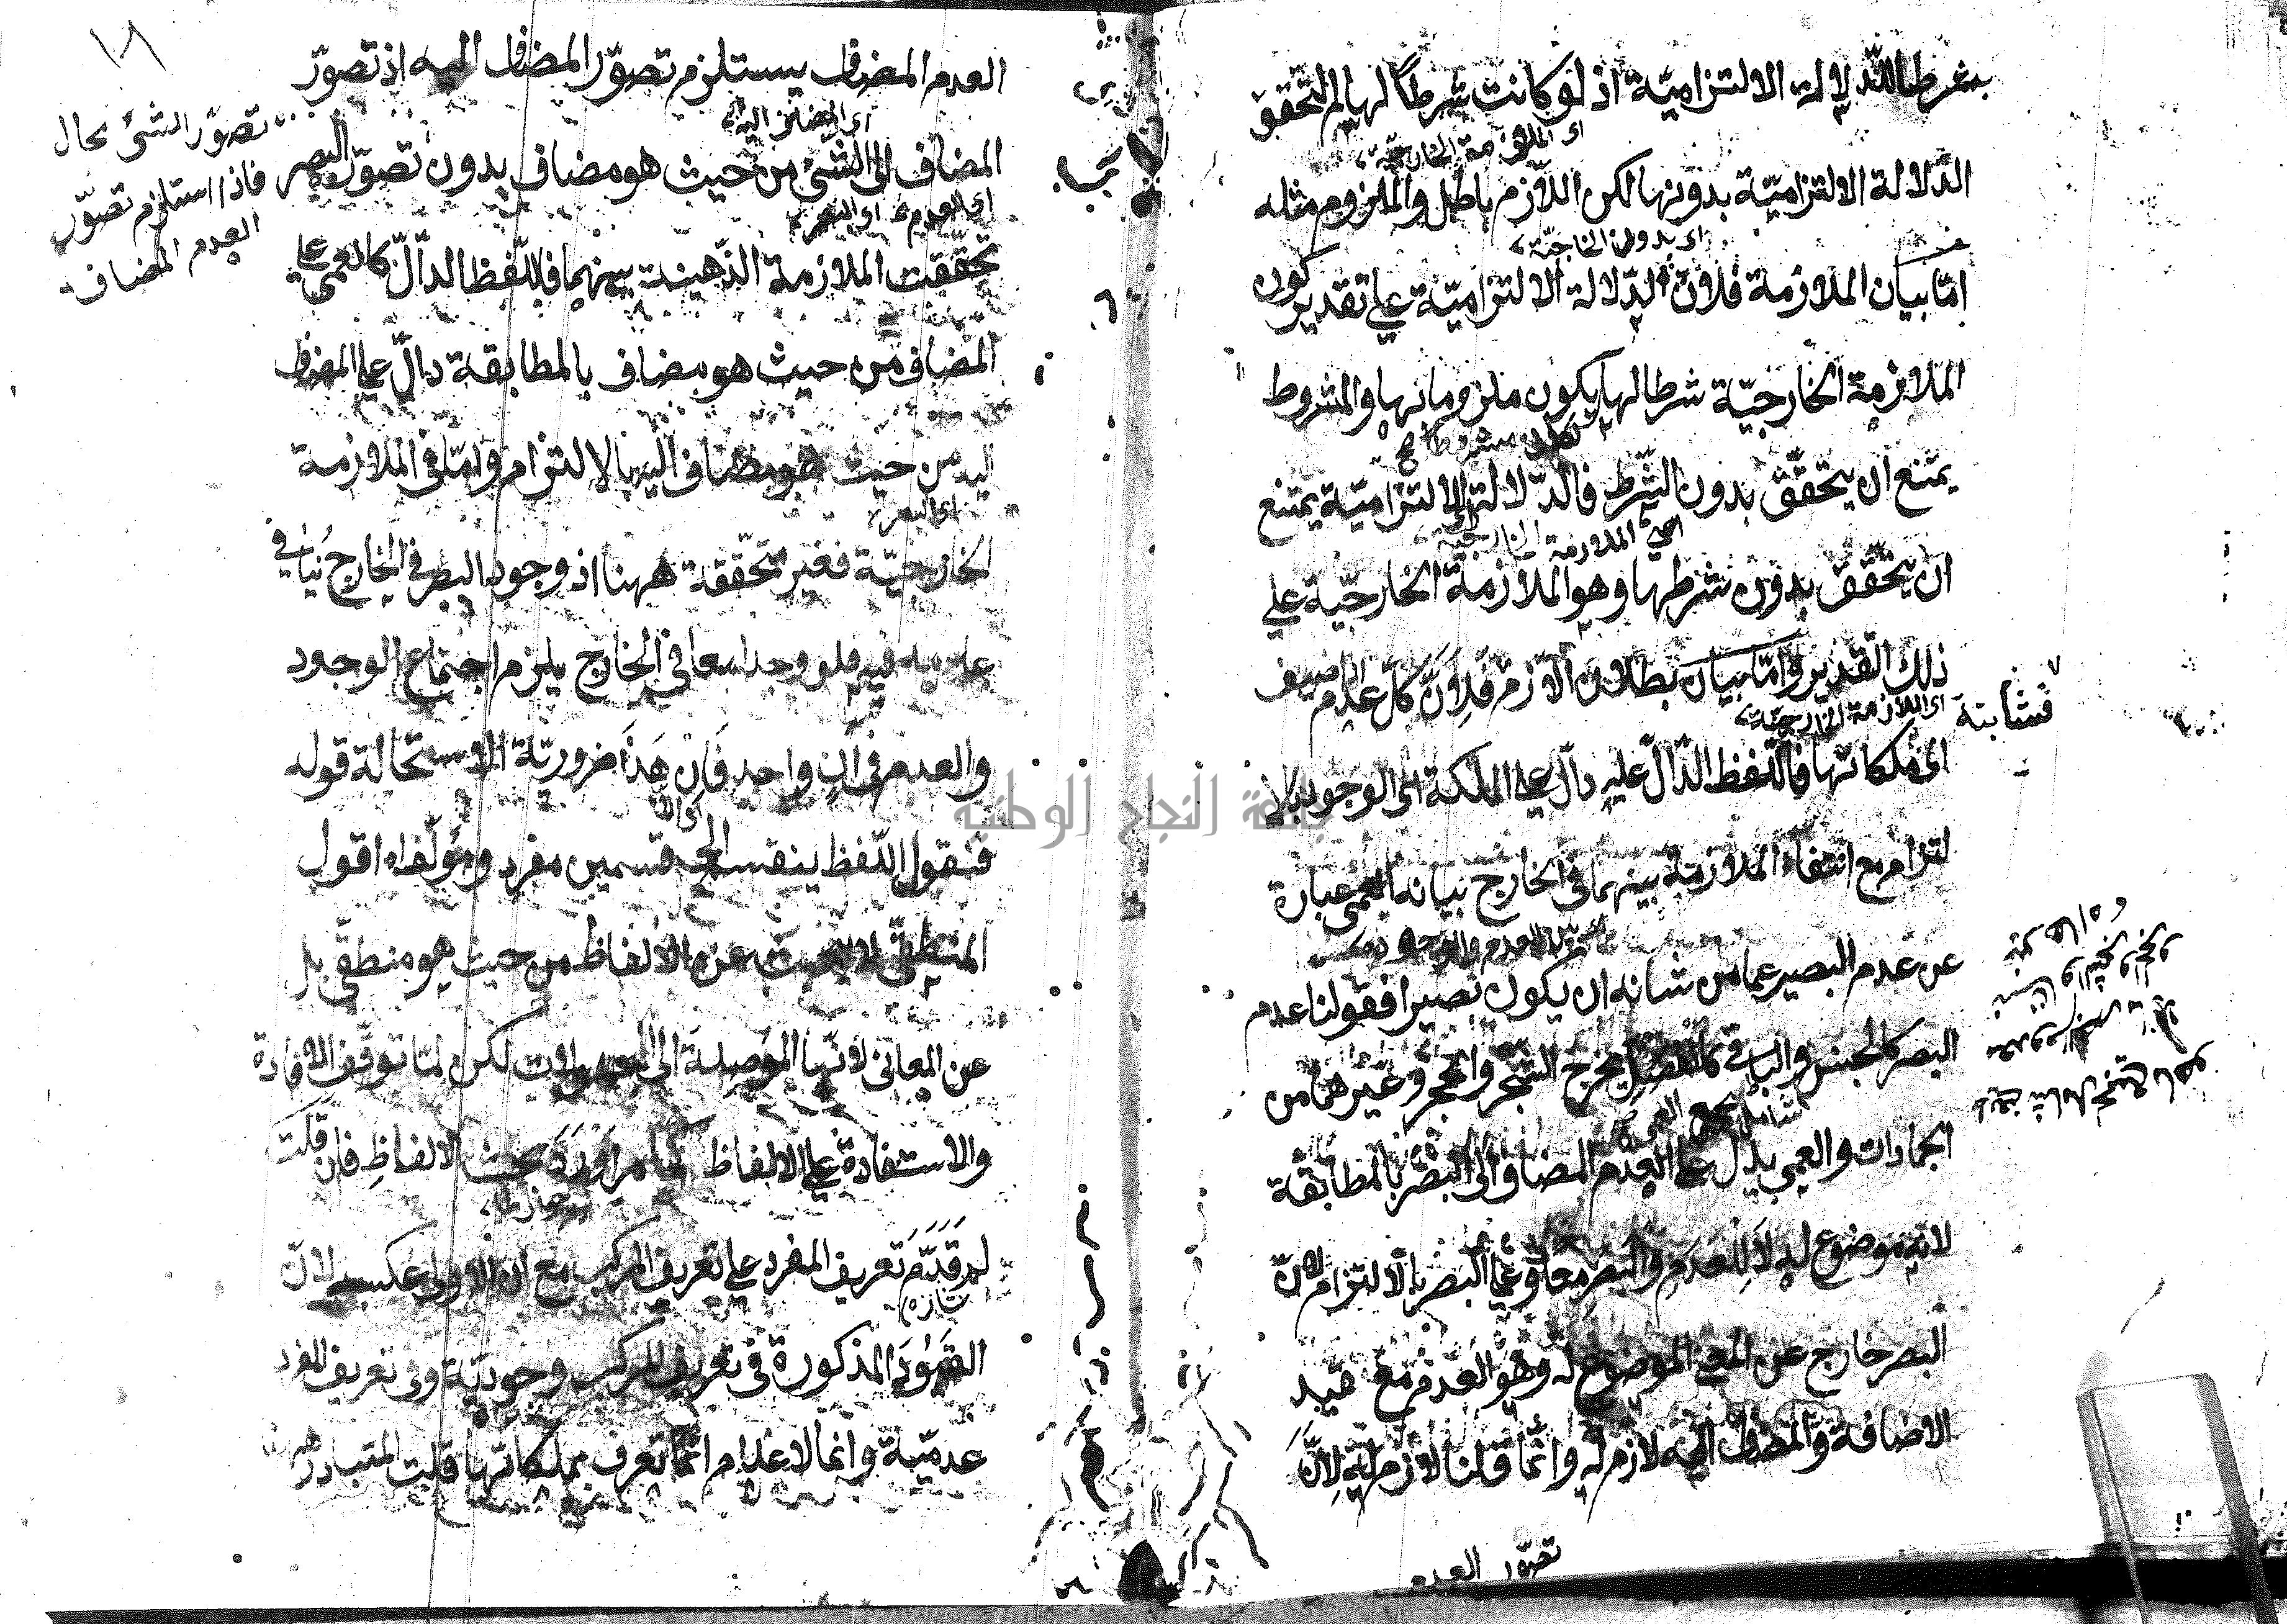 بشرط الدلالة الالتزاميّة اذ لو كانت شرطاً لها لم تتحقق
اى الملازمة الخارجيّة
الدّلالة الالتزاميّة بدونها لكن اللّازم باطل والملزوم مثله
اى بدون الخارجيّة
امّا بيان الملازمة فلانّ الدّلالة الالتزاميّة على تقدير كون
الملازمة الخارجيّة شرطا لها يكون ملزوما بها والمشروط
يمتنع ان يتحقّق بدون الشّرط فالدّلالة الالتزاميّة يمتنع
اعنى الملازمة الخارجية
ان يتحقّق بدون شرطها وهو الملازمة الخارجيّة على
ذلك التقدير وامّا بيان بطلان اللّازم فلانّ كلّ عدم اضيف
اى اللازمة الخارجيّة
اى ملكاتها فاللّفظ الدّالّ عليه دالّ على الملكة اى الوجود بالا
لتزام مع انتفاء الملازمة بينهما فى الخارج بيانه العمى عبارة
عن عدم البصر عما من شانه ان يكون بصيرا فقولنا عدم
البصر كالجنس والباقى كالفصل يخرج الشّجر والحجر وغيرهما من
الجمادات والعمى يدلّ على العدم المضاف الى البصر بالمطابقة
لانه موضوع له لا للعدم والبصر معا وعلى البصر بالالتزام لانّ
البصر خارج عن المعنى الموضوع له وهو العدم مع قيد
الاضافة والمضاف اليه لازم له وانّما قلنا لازم له لانّ
تصوّر العدم
١٨
العدم المضاف يستلزم تصوّر المضاف اليه اذ تصوّر
اى المضاف اليه
المضاف الى الشئ من حيث هو مضاف بدون تصوّر البصر
تصوّر الشئ محال
فاذا استلزم تصوّر
العدم المضاف
اى العدم اى البصر
تحقّقت الملازمة الذّهنية بينهما فاللّفظ الدّالّ كالعمى على
المضاف من حيث هو مضاف بالمطابقة دالّ على المضاف
اليه من حيث هو مضاف اليه بالالتزام وامّا فى الملازمة
اى البصر
الخارجيّة فغير متحقّقة ههنا اذ وجود البصر فى الخارج ينافى
عدميه فيه فلو وجدا معا فى الخارج يلزم اجتماع الوجود
والعدم فى ان واحد فان هذا ضروريّة الاستحالة قوله
فنقول اللّفظ ينقسم الى قسمين مفرد ومؤلّف اه اقول
المنطقىّ لا يبحث عن الالفاظ من حيث هو منطقىّ بل
عن المعانى لانّها الموصلة الى المجهولات لكن لمّا توقّف الافادة
والاستفادة على الالفاظ بحث الالفاظ فان قلت
لم قدّم تعريف المفرد على تعريف المركب مع ان الاولى عكسه لانّ
القيود المذكورة فى تعريف المركب وجوديّة وفى تعريف المفرد
عدميّة وانما الاعدام انّما تعرف بملكاتها قلت المتبادر
جامعة النجاح الوطنية